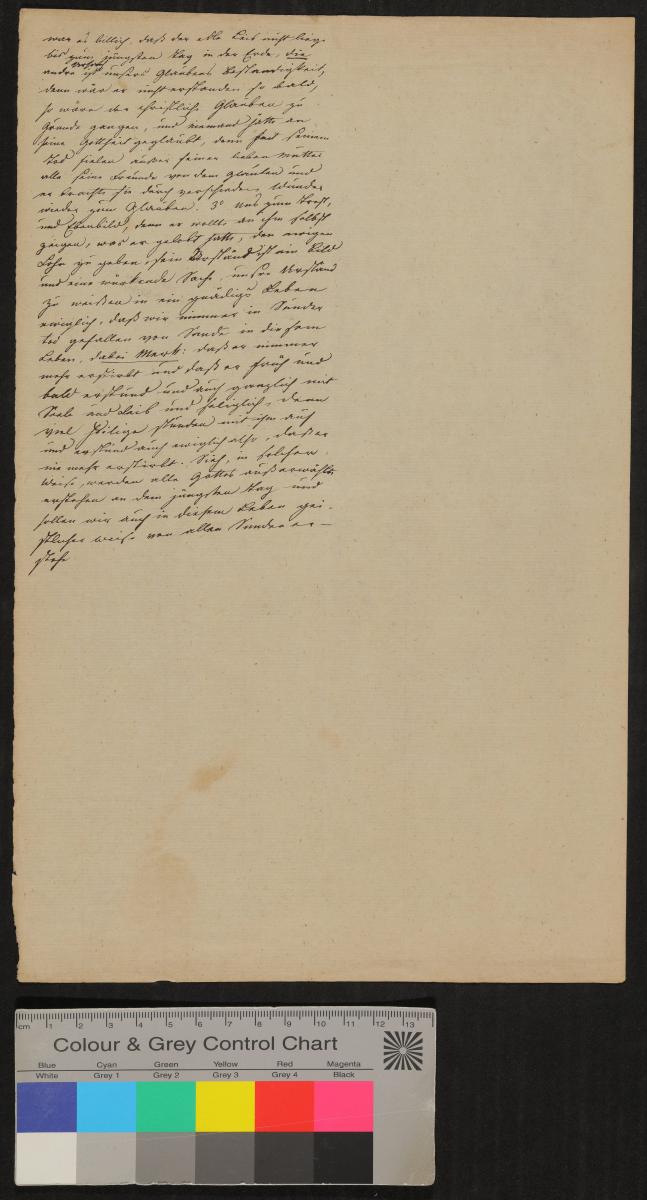 war es billich, daß der edle Leib nicht liege
bis zum jüngsten Tag in der Erde, die
andre Ursach ist unsers Glaubens Bestandigkeit,
denn wär er nicht erstanden so bald,
so wäre der christliche Glauben zu
Grunde gangen, und niemand hätte an
seine Gottheit geglaubt, denn seinem
Tod fielen außer seiner lieben Mutter
alle seine Freunde von dem Glauben und
er brachte sie durch verschiedene Wunder
wieder zum Glauben. 3° Uns zum Trost,
und Ebenbild, denn er wollt an ihm selbst
zeigen, was er gelobt hatte, den ewigen
Lohn zu geben, sein Urständ ist ein Bild
und eine würkende Sache, unsre Urständ
zu weißen in ein gnädigs Leben
ewiglich, daß wir nimmer in Sünder
tod gefallen von Sünde in diesem
Leben, dabei Merk: daß er nimmer
mehr erstirbt und daß er früh und
bald erstund und auch ganzlich mit
Seele und Leib und seliglich, denn
viel Heilige stunden mit ihm auf
und erstund auch ewiglich also, daß er
nie mehr erstirbt. Sieh, in solcher
Weise, werden alle Gottes außerwählte
erstehen an dem jüngsten Tag und
sollen wir auch in diesem Leben gei-
stlicher weise von allen Sünden er-
stehe
cm 1 2 3 4 5 6 7 8 9 10 11 12 13
Colour & Grey Control Chart
Blue Cyan Green Yellow Red Magenta
White Grey 1 Grey 2 Grey 3 Grey 4 Black